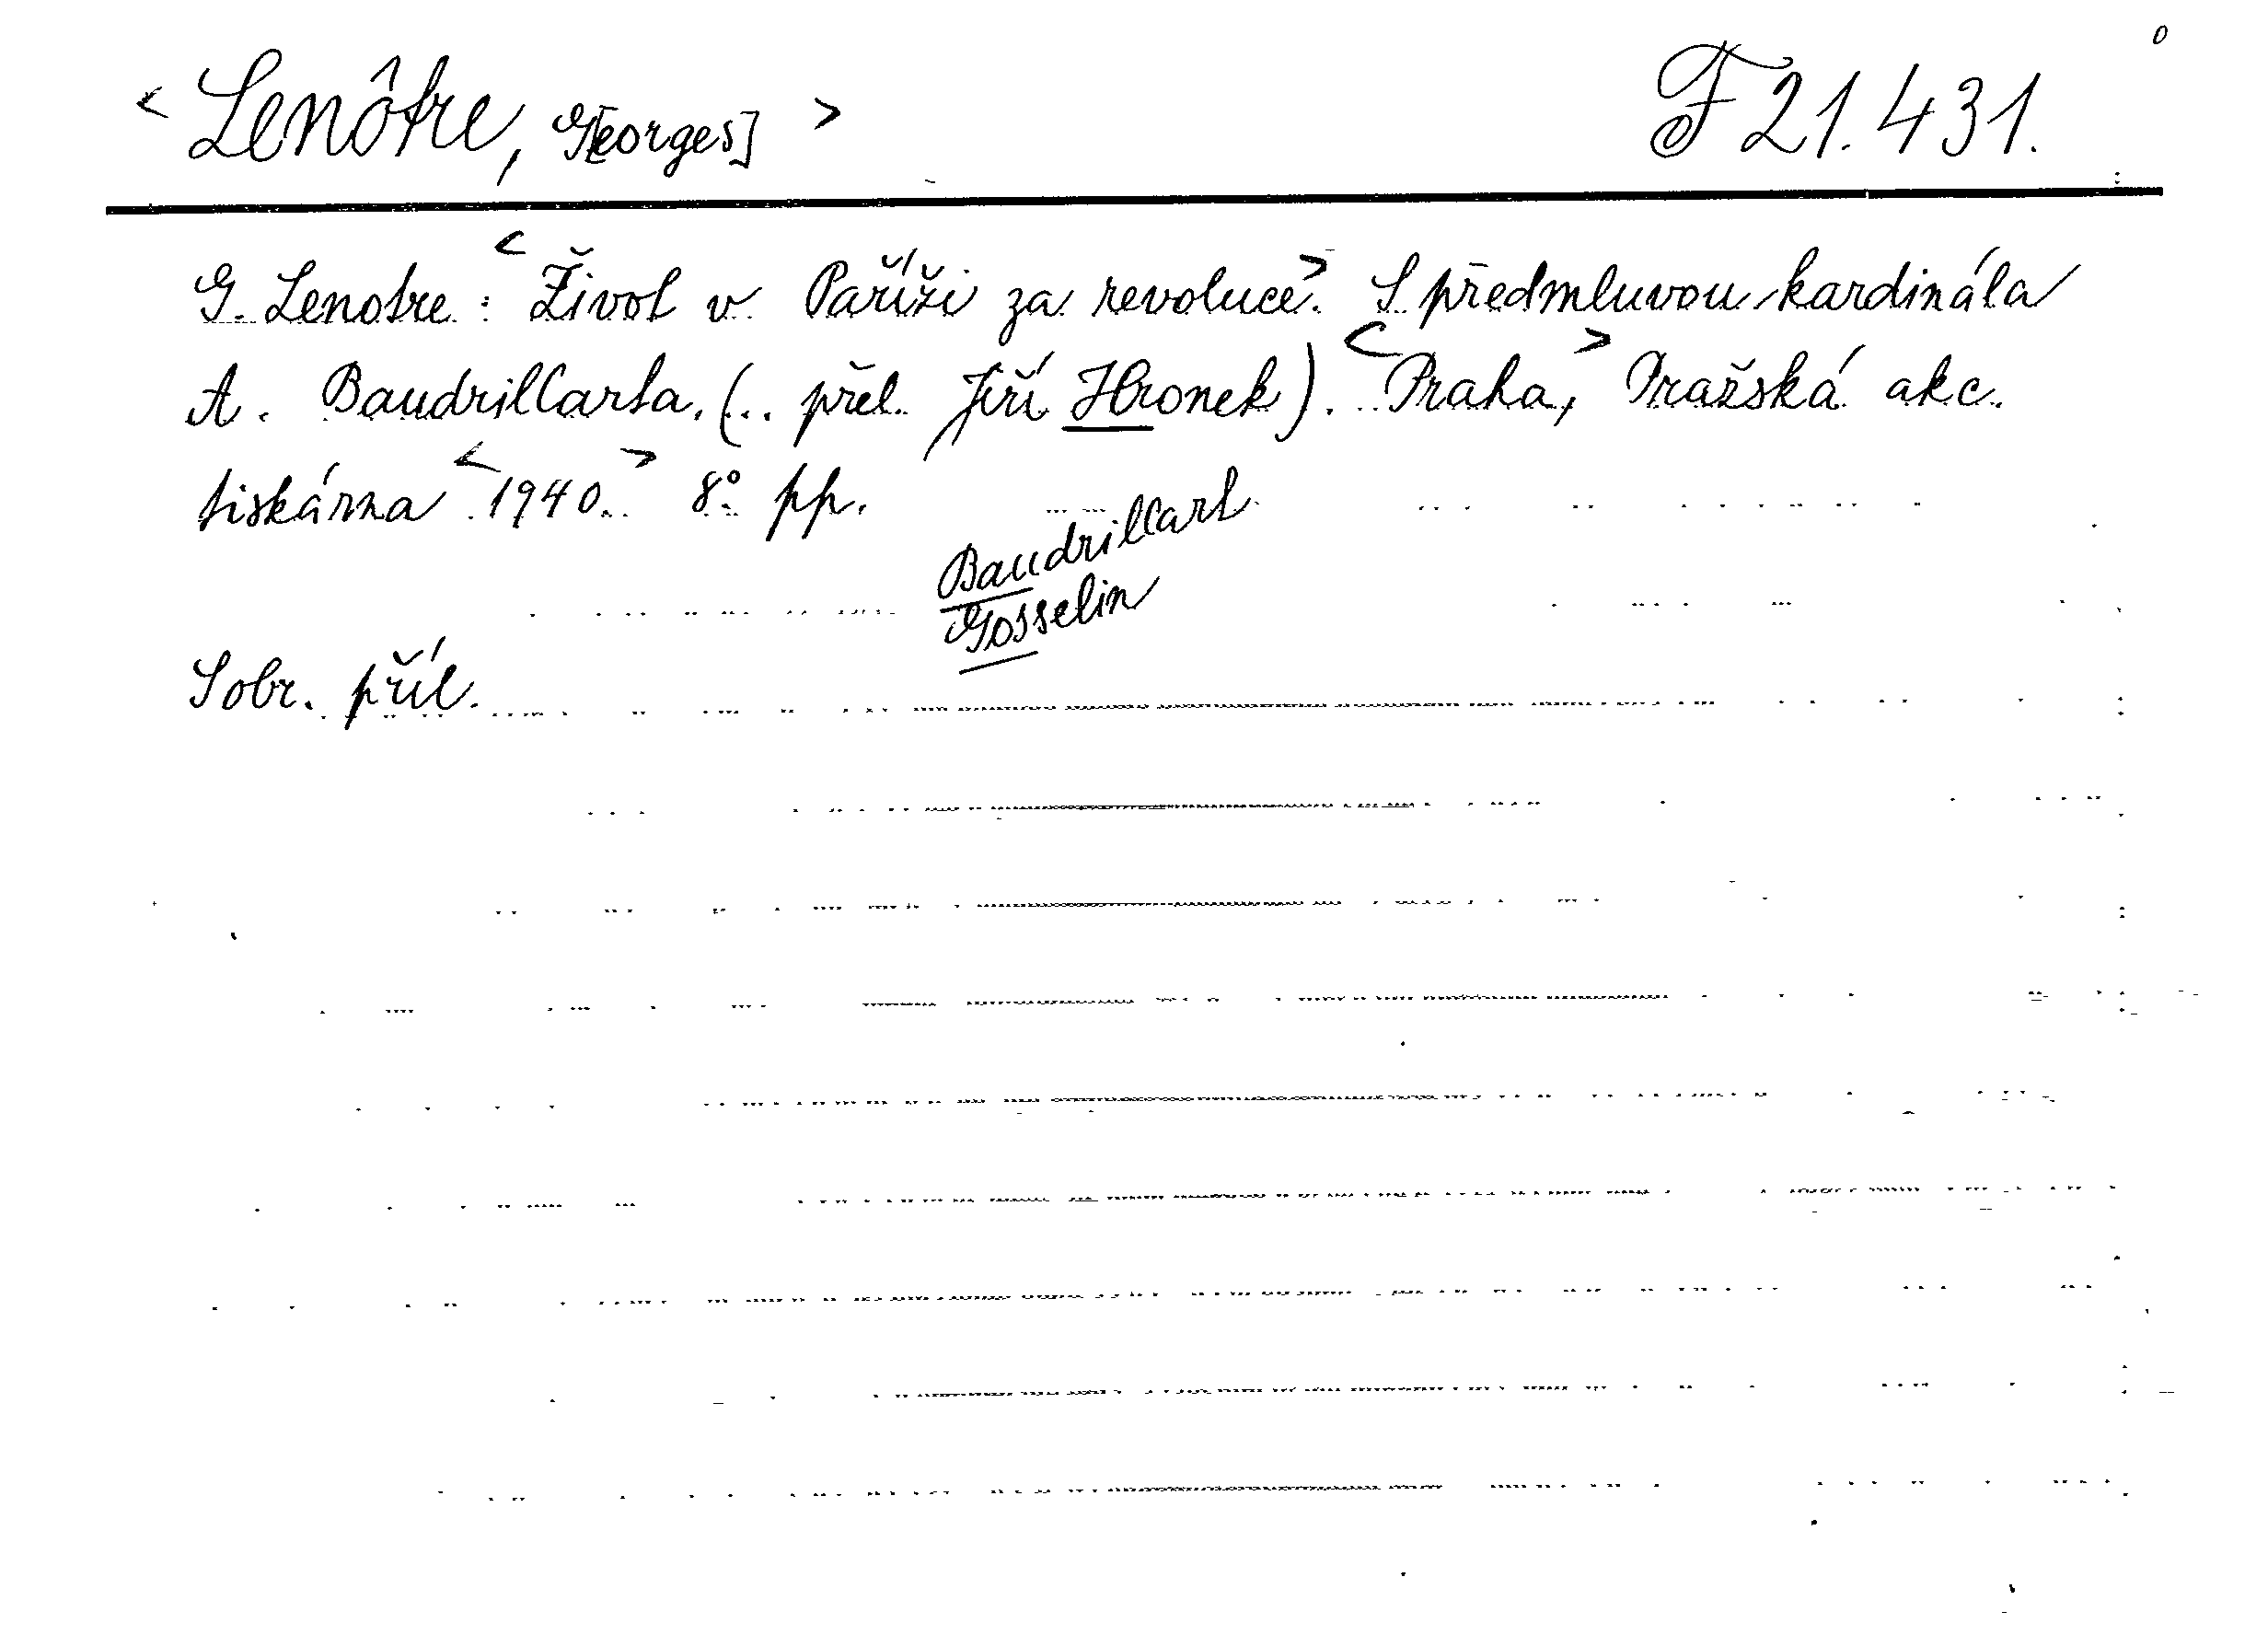 0
< Lenôtre, G[eorges] > F 21.431.
G. Lenotre: < Život v Paříži za revoluce.> S předmluvou kardinála
A. Baudrillarta. (.. přel. Jiří Hronek). < Praha, > Pražská akc.
tiskárna < 1940. > 8° pp.
Baudrillart
Gosselin
S obr. příl.